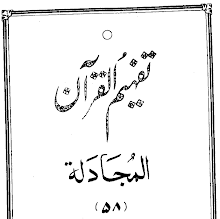 تفہیم القرآن
المُجَادلة
(۵۸)